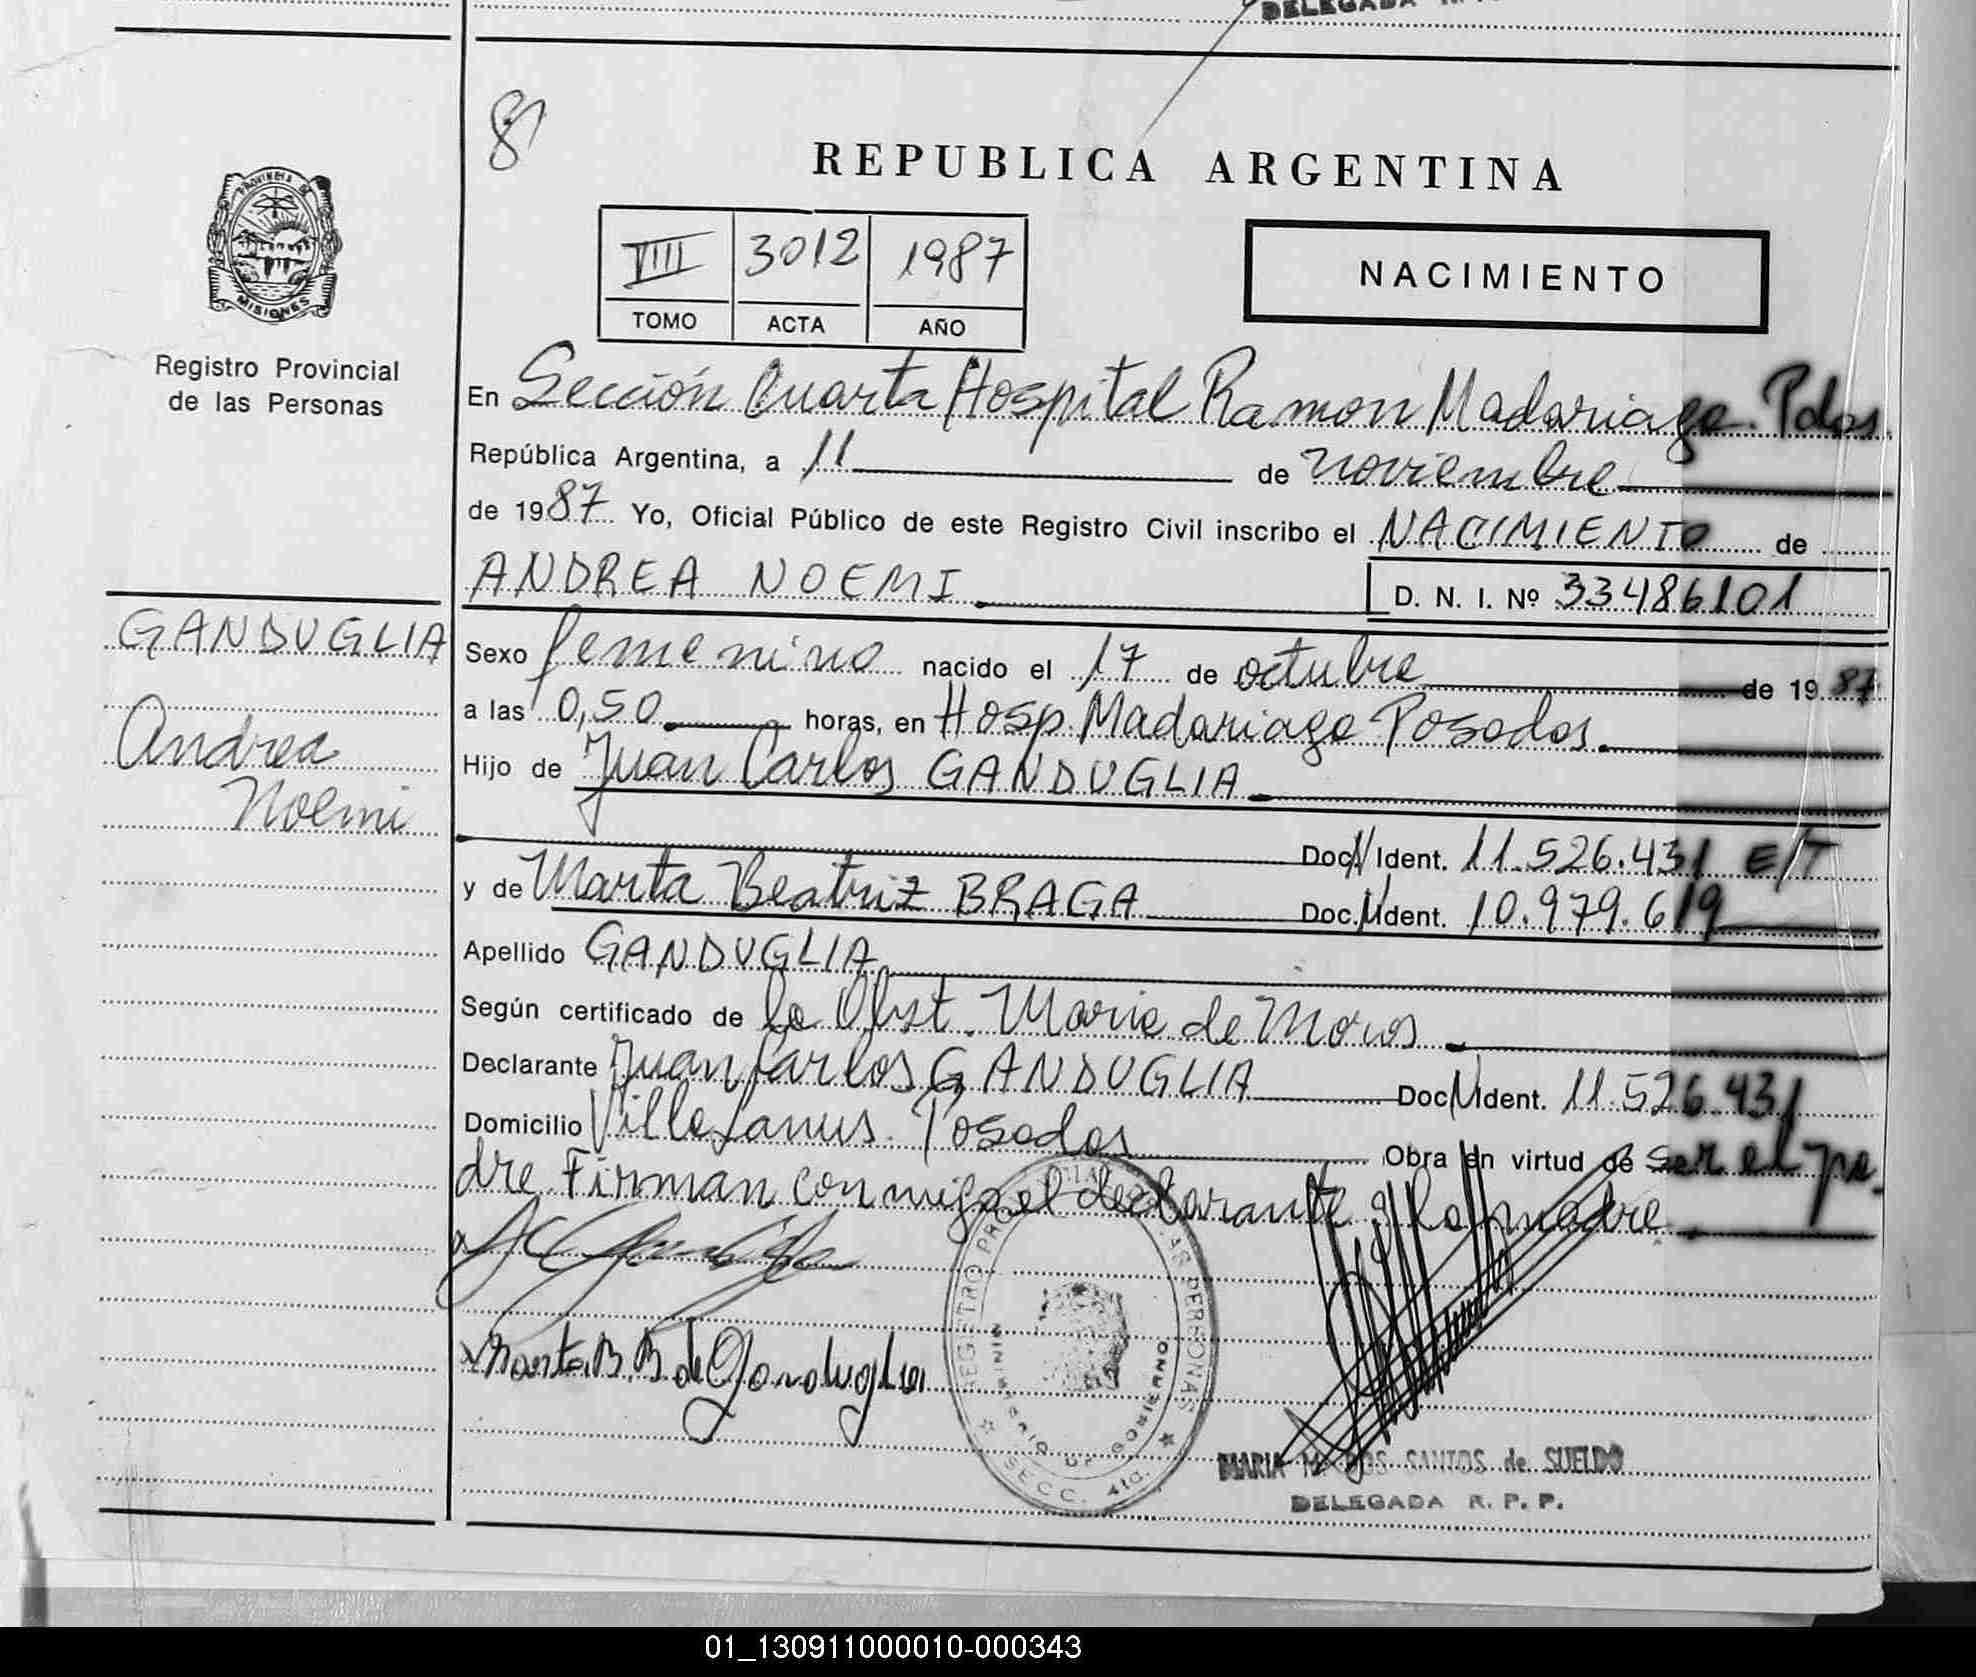 DELEGADA
81
REPUBLICA ARGENTINA
PROVINCIA DE
MISIONES
VIII 3012 1987
TOMO ACTA AÑO
NACIMIENTO
Registro Provincial
de las Personas
En Sección Cuarta Hospital Ramon Madariaga. Pdas.
República Argentina, a 11 de noviembre
de 1987 Yo, Oficial Público de este Registro Civil inscribo el NACIMIENTO de
ANDREA NOEMI D. N. I. Nº 33486101
GANDUGLIA
Andrea
Noemi
Sexo femenino nacido el 17 de octubre de 1987
a las 0,50 horas, en Hosp. Madariaga Posadas.
Hijo de Juan Carlos GANDUGLIA
Doc. N Ident. 11.526.431 E/T
y de Marta Beatriz BRAGA Doc. N Ident. 10.979.619
Apellido GANDUGLIA
Según certificado de la Obst. Maria de
Declarante Juan Carlos GANDUGLIA Doc N Ident. 11.526.431
Domicilio Villa Lanus. Posadas Obra en virtud de ser el pa-
dre. Firman conmigo el declarante y la madre.
Marta B. B. de Ganduglia
REGISTRO PROVINCIAL DE LAS PERSONAS
MINISTERIO DE GOBIERNO
SECC. 4ta.
MARIA SANTOS de SUELDO
DELEGADA R. P. P.
01_130911000010-000343